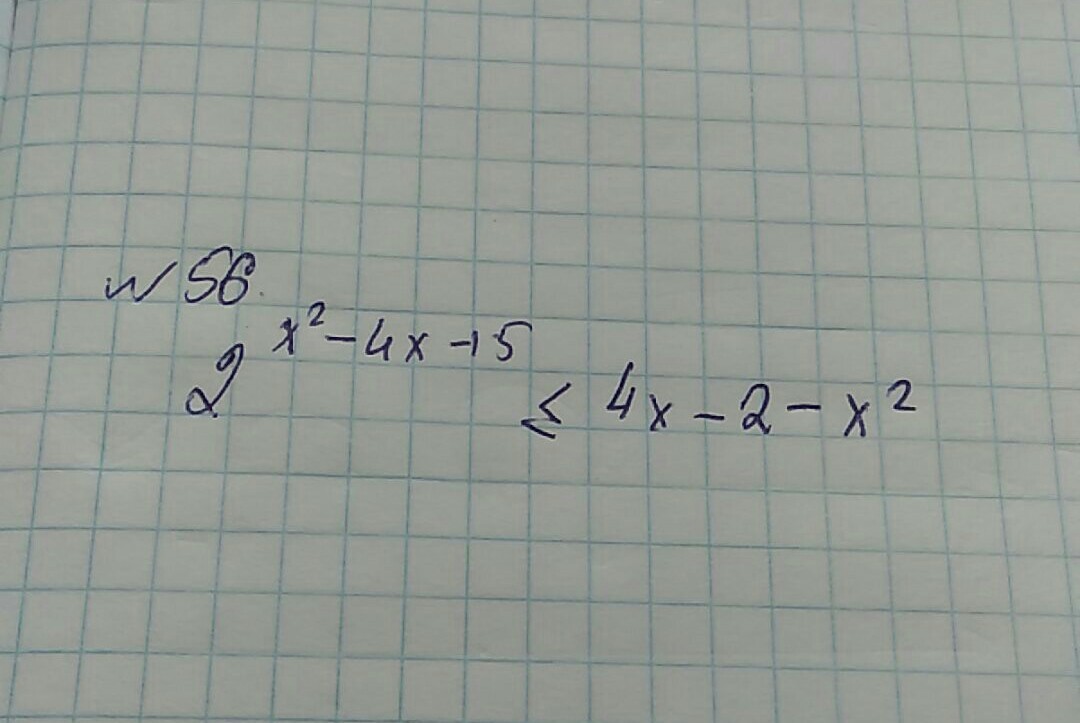 №56.
2^{x²-4x+5} ≤ 4x-2-x²